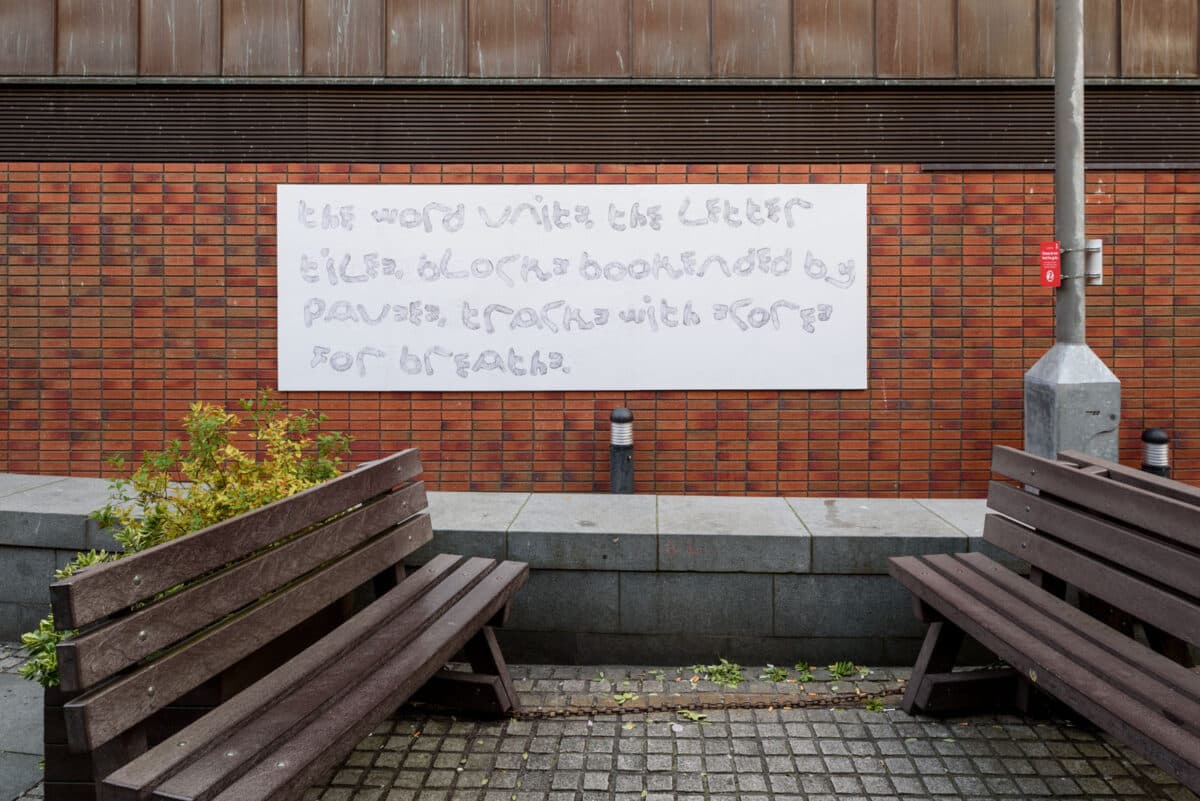 the word units, the letter
tiles, blocks bookended by
pauses, tracks with scores
for breaths.